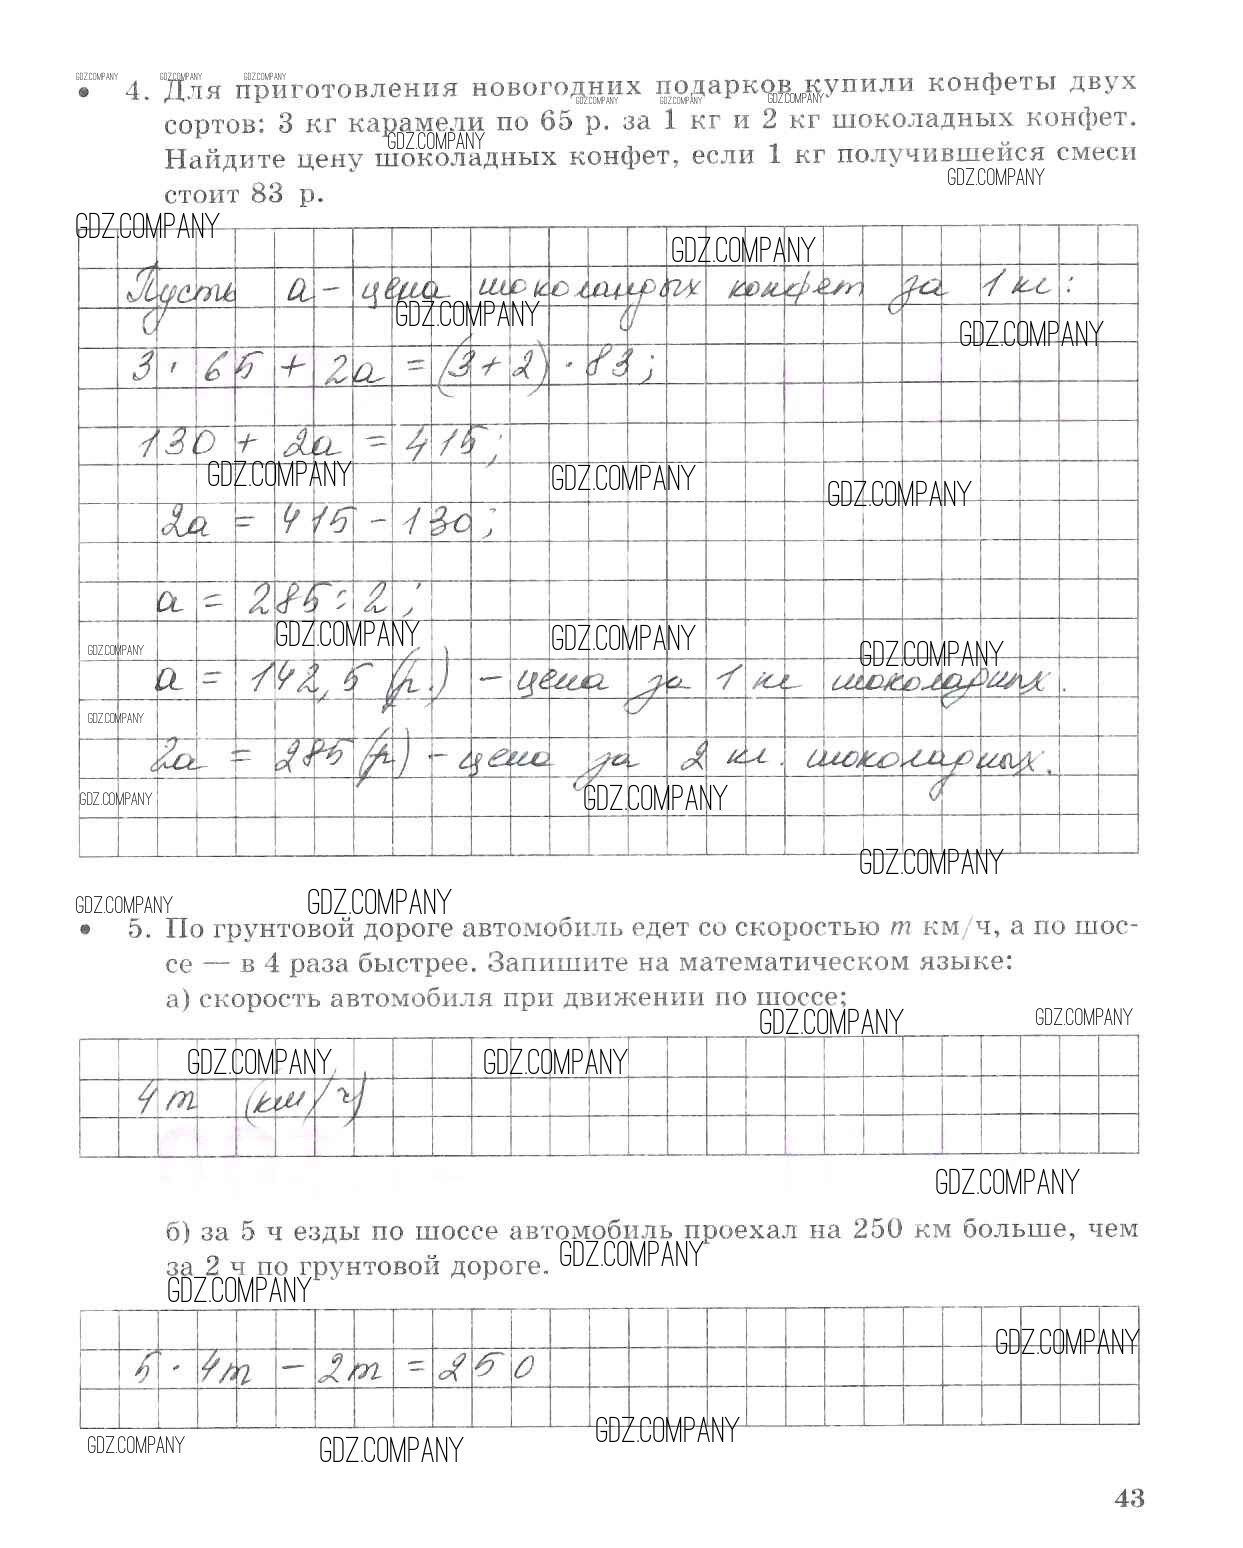 GDZ.COMPANY GDZ.COMPANY GDZ.COMPANY
• 4. Для приготовления новогодних подарков купили конфеты двух
GDZ.COMPANY GDZ.COMPANY GDZ.COMPANY
сортов: 3 кг карамели по 65 р. за 1 кг и 2 кг шоколадных конфет.
GDZ.COMPANY
Найдите цену шоколадных конфет, если 1 кг получившейся смеси
GDZ.COMPANY
стоит 83 р.
GDZ.COMPANY
GDZ.COMPANY
Пусть а – цена шоколандых конфет за 1 кг:
GDZ.COMPANY
GDZ.COMPANY
3 · 65 + 2а = (3 + 2) · 83;
130 + 2а = 415;
GDZ.COMPANY GDZ.COMPANY GDZ.COMPANY
2а = 415 – 130;
а = 285 : 2;
GDZ.COMPANY GDZ.COMPANY GDZ.COMPANY GDZ.COMPANY
а = 142,5 (р.) – цена за 1 кг шоколадных.
GDZ.COMPANY
2а = 285 (р) – цена за 2 кг. шоколадных.
GDZ.COMPANY GDZ.COMPANY
GDZ.COMPANY
GDZ.COMPANY GDZ.COMPANY
• 5. По грунтовой дороге автомобиль едет со скоростью m км/ч, а по шос-
се — в 4 раза быстрее. Запишите на математическом языке:
а) скорость автомобиля при движении по шоссе;
GDZ.COMPANY GDZ.COMPANY
GDZ.COMPANY GDZ.COMPANY
4m (км/ч)
GDZ.COMPANY
б) за 5 ч езды по шоссе автомобиль проехал на 250 км больше, чем
GDZ.COMPANY
за 2 ч по грунтовой дороге.
GDZ.COMPANY
GDZ.COMPANY
5 · 4m – 2m = 250
GDZ.COMPANY
GDZ.COMPANY GDZ.COMPANY
43